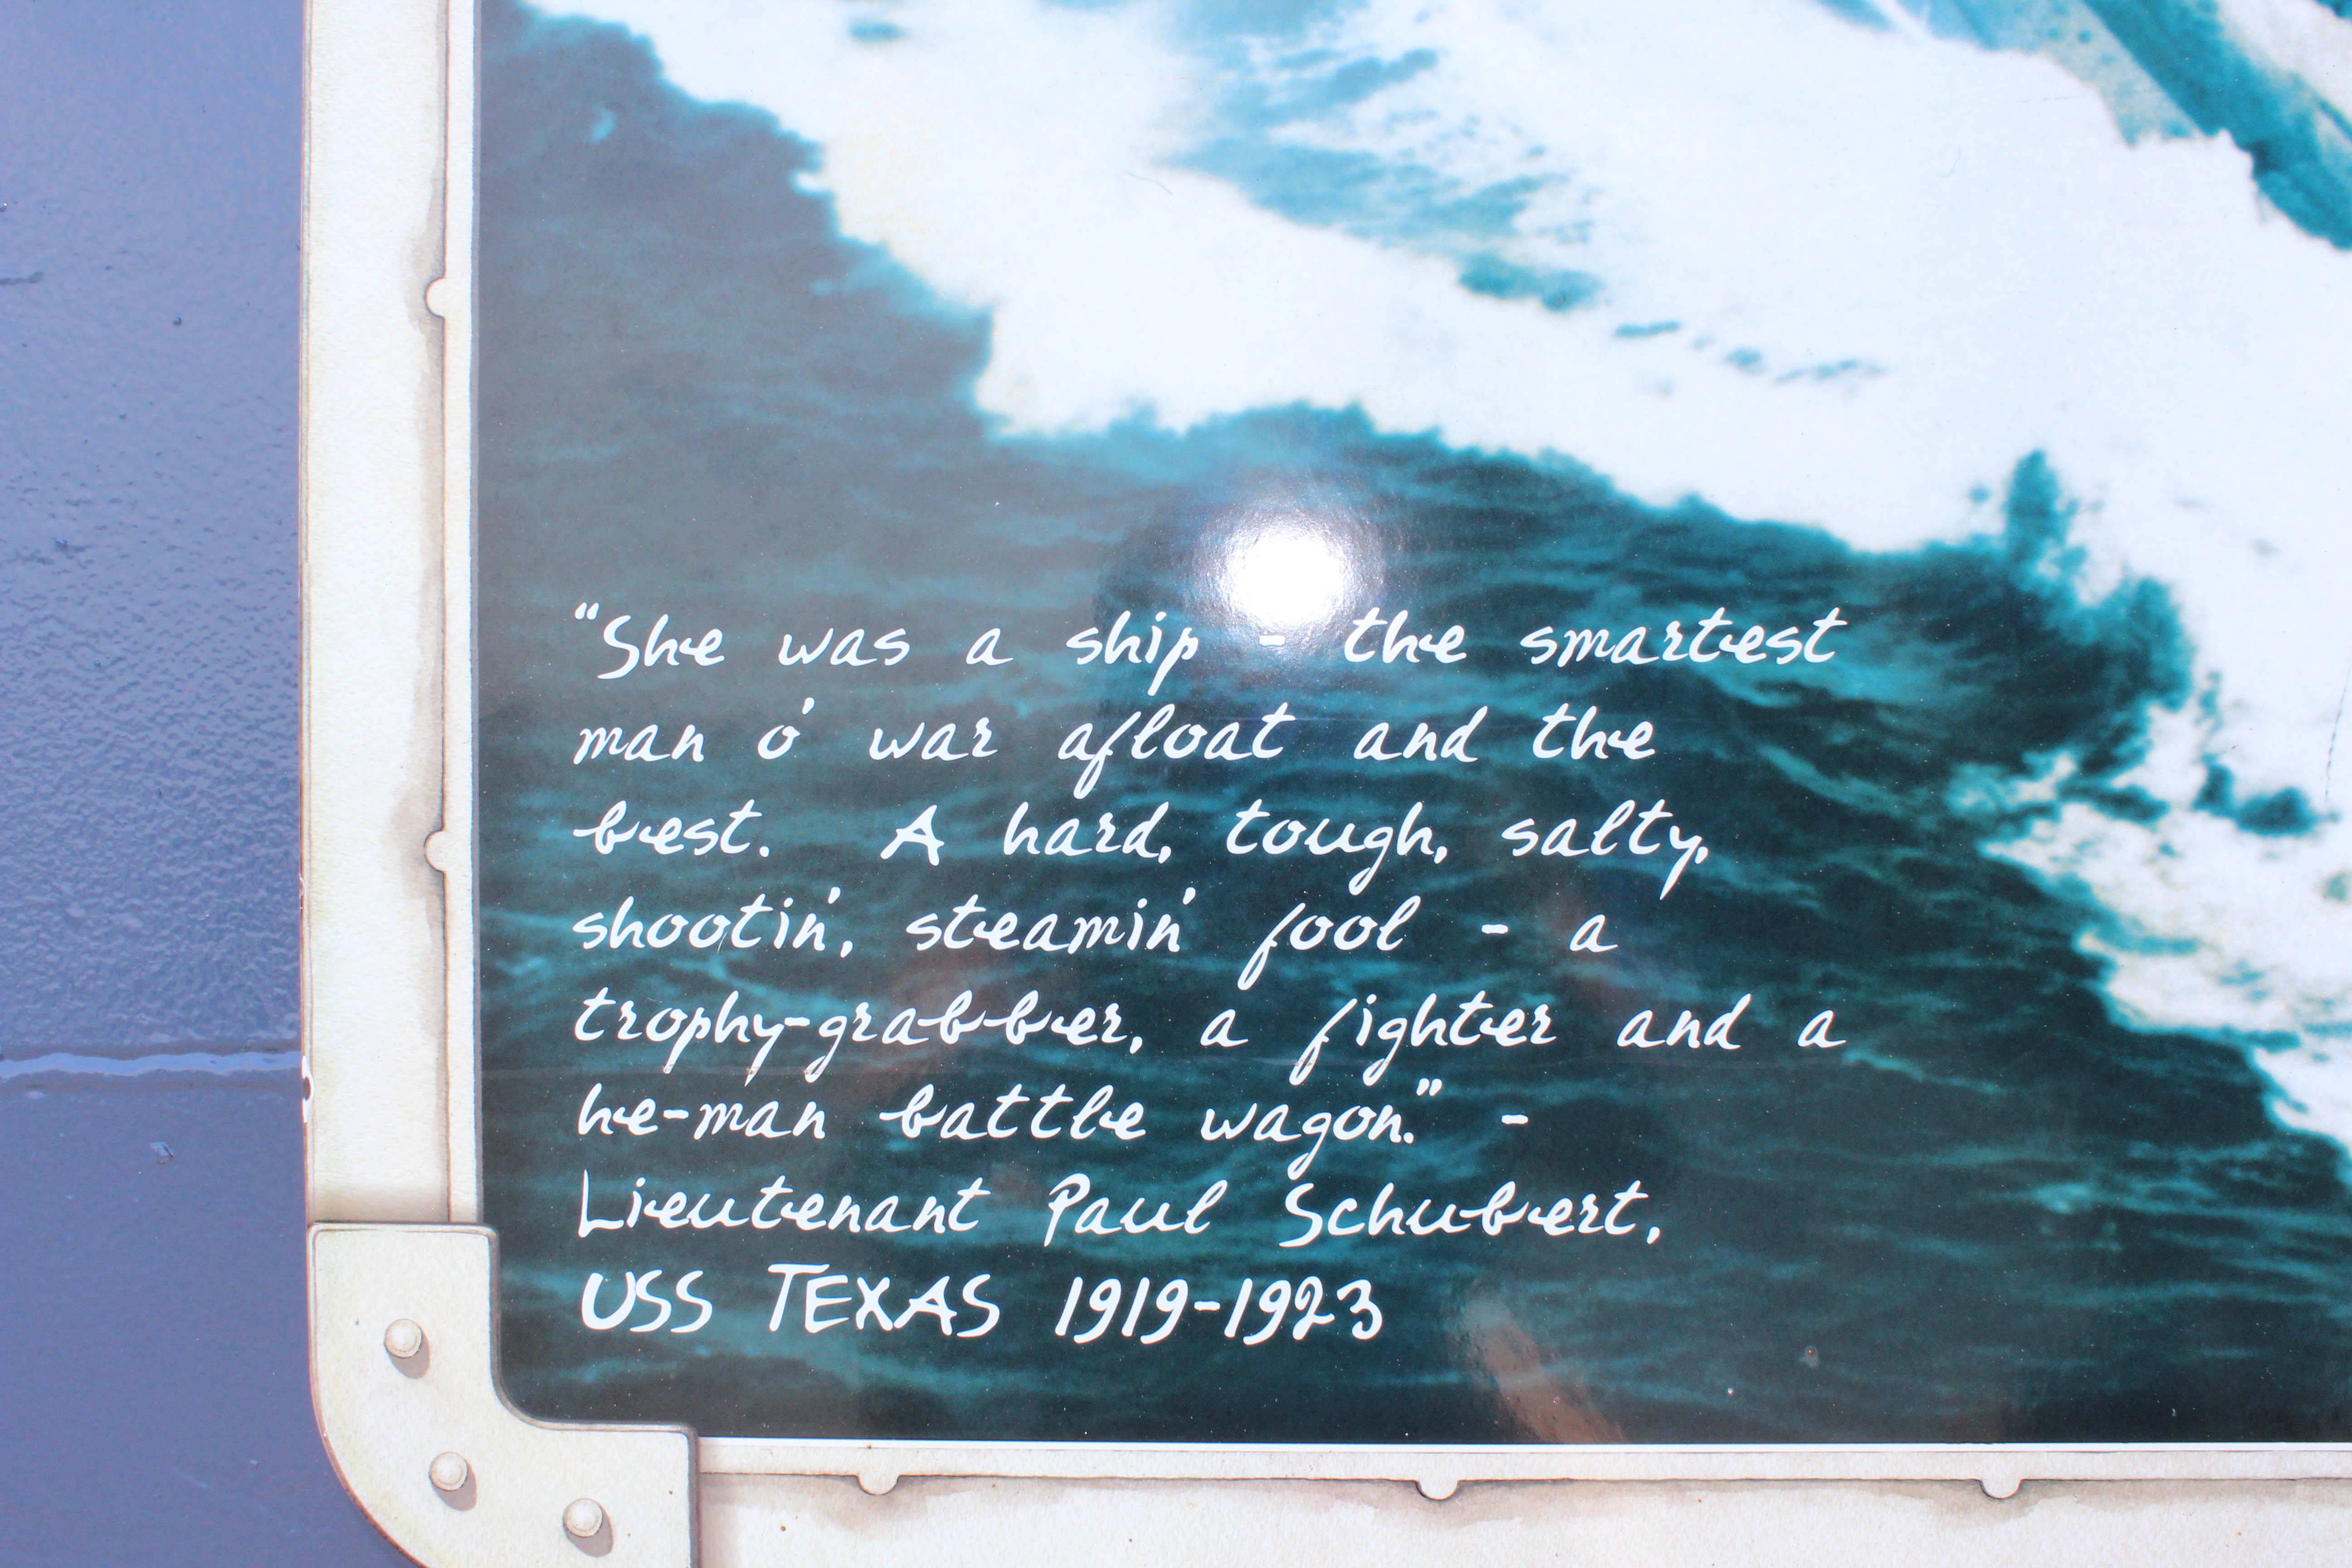 "She was a ship - the smartest
man o' war afloat and the
best. A hard, tough, salty,
shootin', steamin' fool - a
trophy-grabber, a fighter and a
he-man battle wagon." -
Lieutenant Paul Schubert,
USS TEXAS 1919-1923